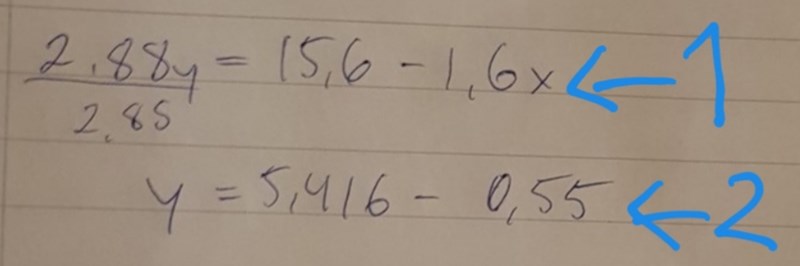 2.88y = 15,6 - 1,6x ← 1
2.85
y = 5,416 - 0,55 ← 2